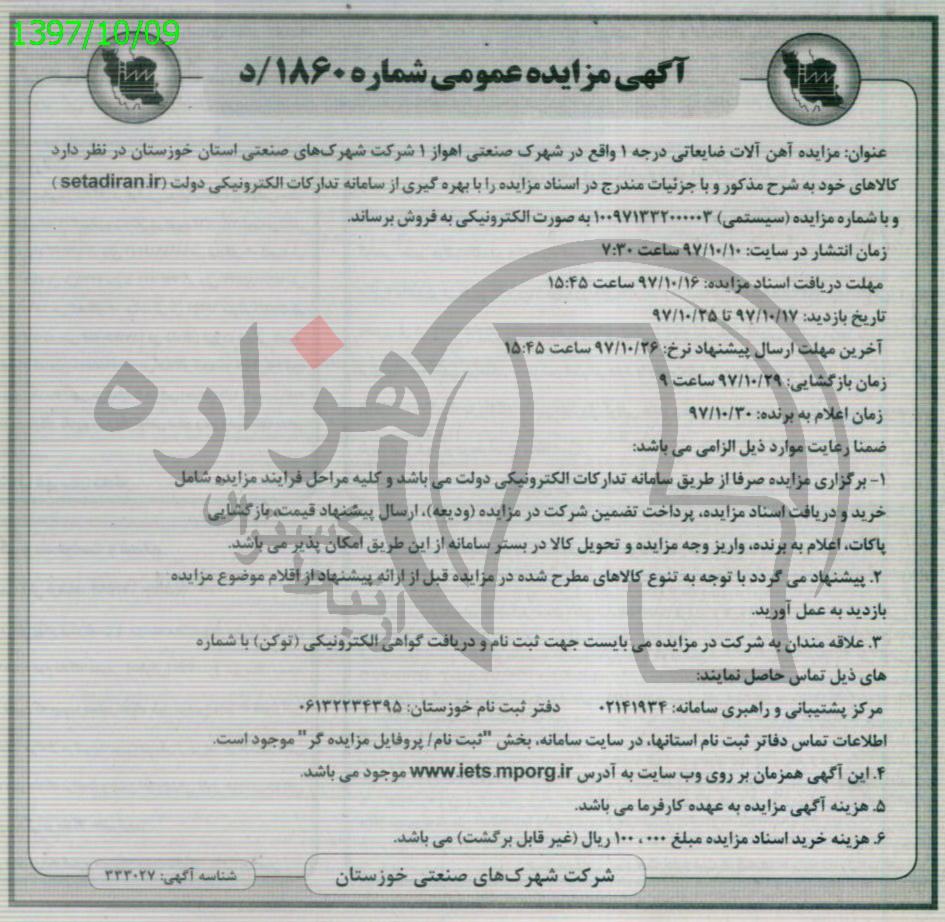 1397/10/09
آگهی مزایده عمومی شماره ۱۸۶۰/د
عنوان: مزایده آهن آلات ضایعاتی درجه ۱ واقع در شهرک صنعتی اهواز ۱ شرکت شهرک‌های صنعتی استان خوزستان در نظر دارد
کالاهای خود به شرح مذکور و با جزئیات مندرج در اسناد مزایده را با بهره گیری از سامانه تدارکات الکترونیکی دولت (setadiran.ir)
و با شماره مزایده (سیستمی) ۱۰۰۹۷۱۳۳۲۰۰۰۰۰۳ به صورت الکترونیکی به فروش برساند.
زمان انتشار در سایت: ۹۷/۱۰/۱۰ ساعت ۷:۳۰
مهلت دریافت اسناد مزایده: ۹۷/۱۰/۱۶ ساعت ۱۵:۴۵
تاریخ بازدید: ۹۷/۱۰/۱۷ تا ۹۷/۱۰/۲۵
آخرین مهلت ارسال پیشنهاد نرخ: ۹۷/۱۰/۲۶ ساعت ۱۵:۴۵
زمان بازگشایی: ۹۷/۱۰/۲۹ ساعت ۹
زمان اعلام به برنده: ۹۷/۱۰/۳۰
ضمنا رعایت موارد ذیل الزامی می باشد:
۱- برگزاری مزایده صرفا از طریق سامانه تدارکات الکترونیکی دولت می باشد و کلیه مراحل فرایند مزایده شامل
خرید و دریافت اسناد مزایده، پرداخت تضمین شرکت در مزایده (ودیعه)، ارسال پیشنهاد قیمت، بازگشایی
پاکات، اعلام به برنده، واریز وجه مزایده و تحویل کالا در بستر سامانه از این طریق امکان پذیر می باشد.
۲. پیشنهاد می گردد با توجه به تنوع کالاهای مطرح شده در مزایده قبل از ارائه پیشنهاد از اقلام موضوع مزایده
بازدید به عمل آورید.
۳. علاقه مندان به شرکت در مزایده می بایست جهت ثبت نام و دریافت گواهی الکترونیکی (توکن) با شماره
های ذیل تماس حاصل نمایند:
مرکز پشتیبانی و راهبری سامانه: ۰۲۱۴۱۹۳۴ دفتر ثبت نام خوزستان: ۰۶۱۳۲۲۳۴۳۹۵
اطلاعات تماس دفاتر ثبت نام استانها، در سایت سامانه، بخش "ثبت نام/ پروفایل مزایده گر" موجود است.
۴. این آگهی همزمان بر روی وب سایت به آدرس www.iets.mporg.ir موجود می باشد.
۵. هزینه آگهی مزایده به عهده کارفرما می باشد.
۶. هزینه خرید اسناد مزایده مبلغ ۱۰۰،۰۰۰ ریال (غیر قابل برگشت) می باشد.
شرکت شهرک‌های صنعتی خوزستان
شناسه آگهی: ۳۳۳۰۲۷
هزاره